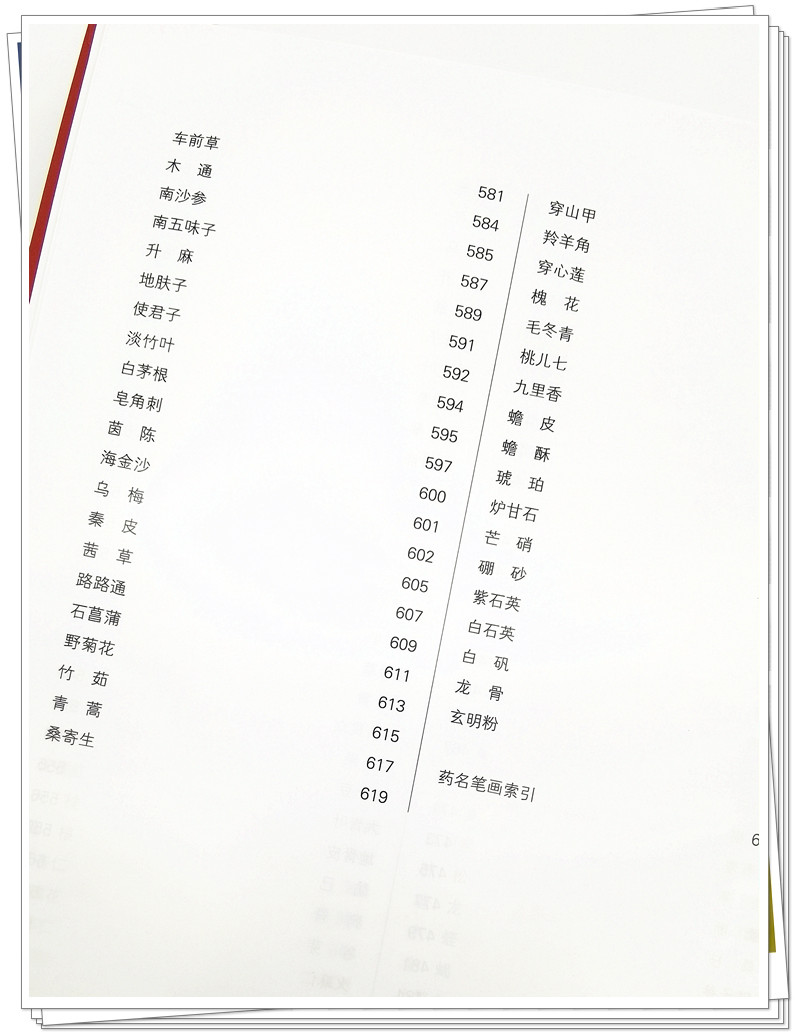 车前草 581
木 通 584
南沙参 585
南五味子 587
升 麻 589
地肤子 591
使君子 592
淡竹叶 594
白茅根 595
皂角刺 597
茵 陈 600
海金沙 601
乌 梅 602
秦 皮 605
茜 草 607
路路通 609
石菖蒲 611
野菊花 613
竹 茹 615
青 蒿 617
桑寄生 619
穿山甲
羚羊角
穿心莲
槐 花
毛冬青
桃儿七
九里香
蟾 皮
蟾 酥
琥 珀
炉甘石
芒 硝
硼 砂
紫石英
白石英
白 矾
龙 骨
玄明粉
药名笔画索引
6